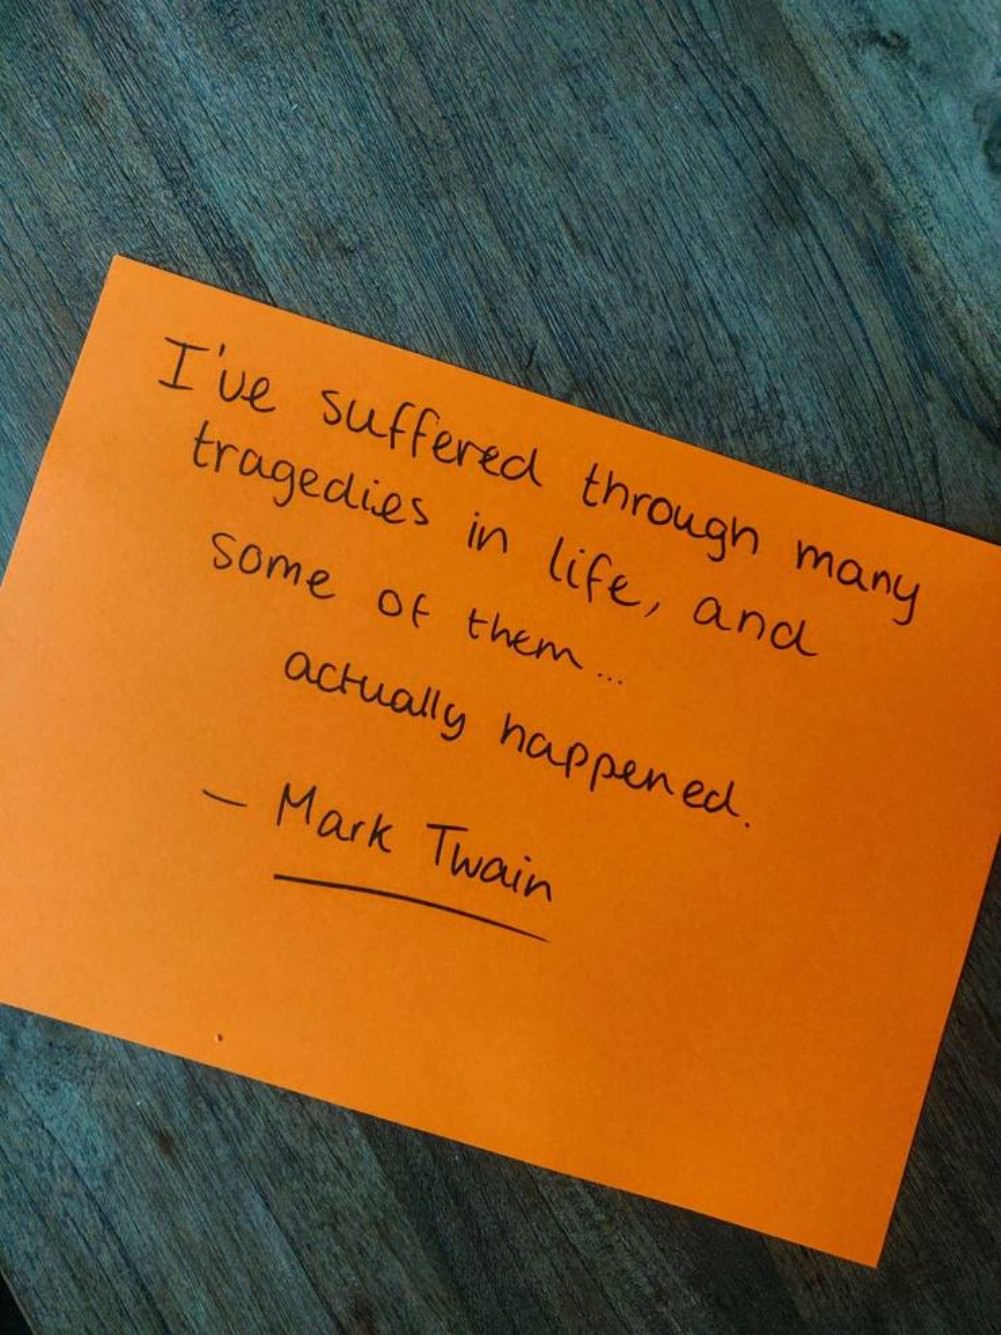 I've suffered through many
tragedies in life, and
some of them...
actually happened.
— Mark Twain